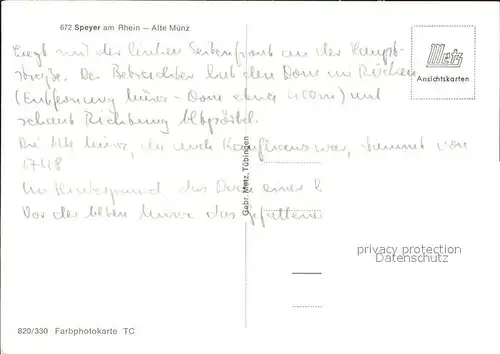 672 Speyer am Rhein — Alte Münz
Metz
Ansichtskarten
liegt mit der linken Seitenfront an der Haupt-
straße. Der Betrachter hat den Dom im Rücken
(Entfernung Münz - Dom etwa 400m) und
schaut Richtung Altpörtel.
Die Alte Münz, die auch Kaufhaus war, stammt von
1748
Im Hintergrund das Dach einer
Vor der Alten Münze das
Gebr. Metz, Tübingen
privacy protection
Datenschutz
820/330 Farbphotokarte TC